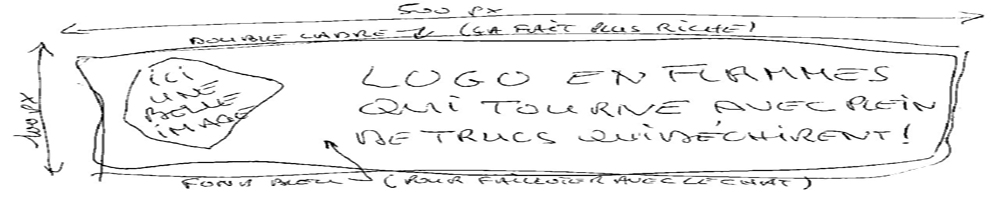 500 px
DOUBLE CADRE (ÇA FAIT PLUS RICHE)
100 px
ici
UNE
BELLE
iMAGE
LOGO EN FLAMMES
QUI TOURNE AVEC PLEIN
DE TRUCS QUI DÉCHIRENT!
FOND BLEU (POUR AVEC LE CHAT)